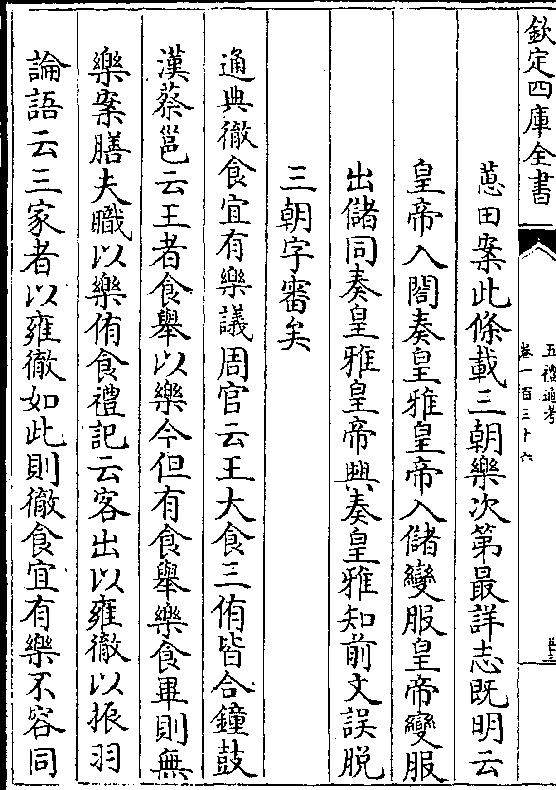 欽定四庫全書
五禮通考
卷一百三十六
蕙田案此條載三朝樂次第最詳志既明云
皇帝入閤奏皇雅皇帝入儲變服皇帝變服
出儲同奏皇雅皇帝興奏皇雅知前文誤脱
三朝字審矣
通典徹食宜有樂議周官云王大食三侑皆合鐘鼓
漢蔡邕云王者食舉以樂今但有食舉樂食畢則無
樂案膳夫職以樂侑食禮記云客出以雍徹以振羽
論語云三家者以雍徹如此則徹食宜有樂不容同